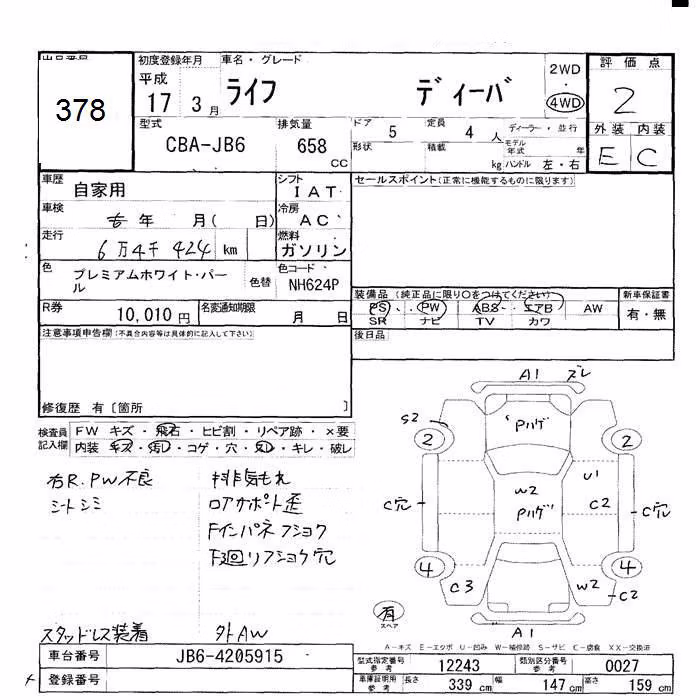 出品番号
378
初度登録年月
平成
17 3月
車名・グレード
ライフ ディーバ
2WD
・
4WD
評価点
2
外装 内装
E C
型式
CBA-JB6
排気量
658
CC
ドア 5
定員 4 人
ディーラー・並行
形状
積載 kg
モデル年式 年
ハンドル 左・右
車歴
自家用
シフト
IAT
セールスポイント(正常に機能するものに限ります)
車検
年 月( 日)
冷房
AC
走行
6万4千424 km
燃料
ガソリン
色
プレミアムホワイト・パール
色替
色コード
NH624P
装備品(純正品に限り○をつけてください)
PS・PW・ABS・エアB AW
SR ナビ TV カワ
新車保証書
有・無
R券
10,010 円
名変通知期限
月 日
後日品
注意事項申告欄(不具合内容等は具体的に記入して下さい)
修復歴 有〔箇所 〕
検査員記入欄
FW キズ・飛石・ヒビ割・リペア跡・×要
内装 キズ・汚レ・コゲ・穴・スレ・キレ・破レ
右R.PW不良
シートシミ
排気もれ
ロアサポート歪
Fインパネフショク
F廻リフショク穴
スタッドレス装着
外AW
A1 ズレ
S2
Pハゲ
2 2
U1
W2
C2
Pハゲ
C穴
C穴
4 4
C3
W2
C2
有
スペア
A1
A-キズ E-エクボ U-凹み W-補修跡 S-サビ C-腐食 XX-交換済
車台番号
JB6-4205915
型式指定番号
参考
12243
類別区分番号
参考
0027
登録番号
車庫証明用
参考
長さ 339 cm
幅 147 cm
高さ 159 cm